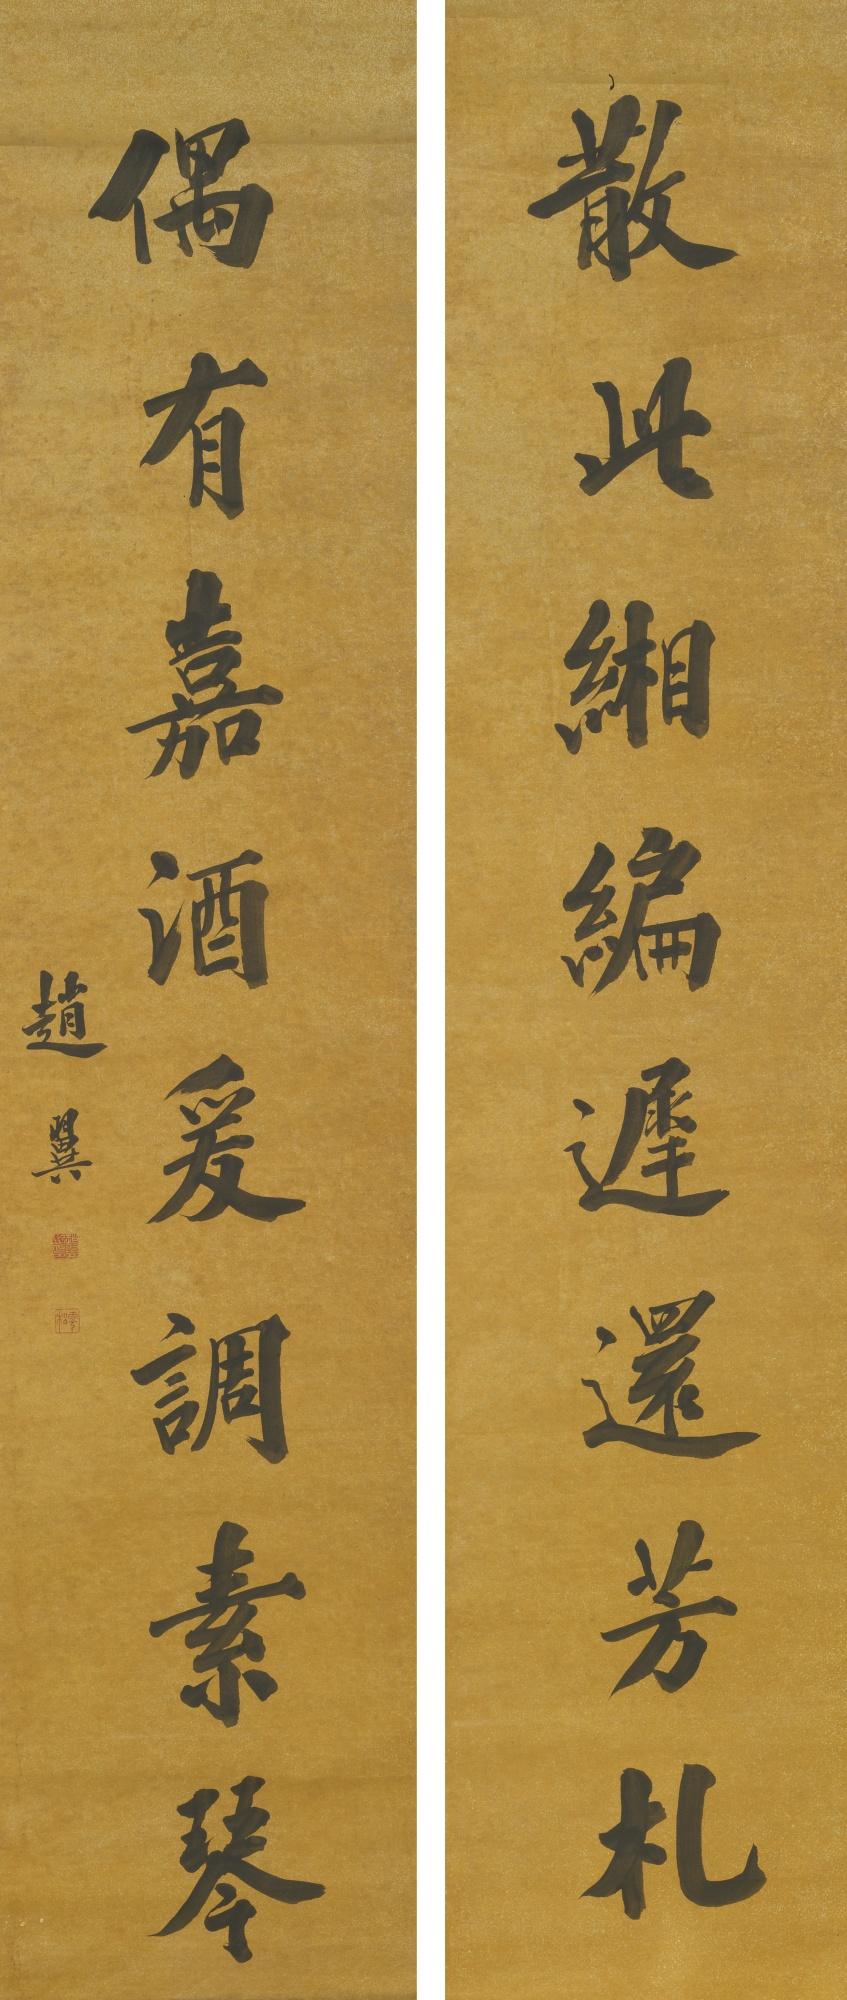 散此緗編遲還芳札
偶有嘉酒爰調素琴
趙翼